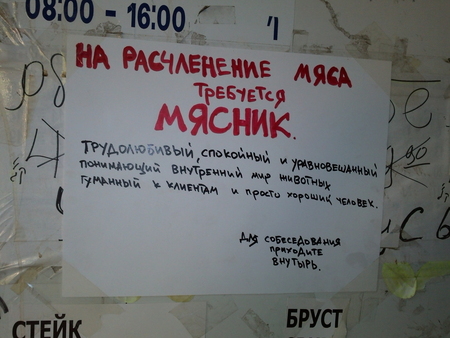 08:00 - 16:00
НА РАСЧЛЕНЕНИЕ МЯСА
ТРЕБУЕТСЯ
МЯСНИК.
ТРУДОЛЮБИВЫЙ, СПОКОЙНЫЙ И УРАВНОВЕШАННЫЙ
ПОНИМАЮЩИЙ ВНУТРЕННИЙ МИР ЖИВОТНЫХ
ГУМАННЫЙ К КЛИЕНТАМ И ПРОСТО ХОРОШИЙ ЧЕЛОВЕК.
ДЛЯ СОБЕСЕДОВАНИЯ
ПРИХОДИТЕ
ВНУТЫРЬ.
СТЕЙК
БРУСТ